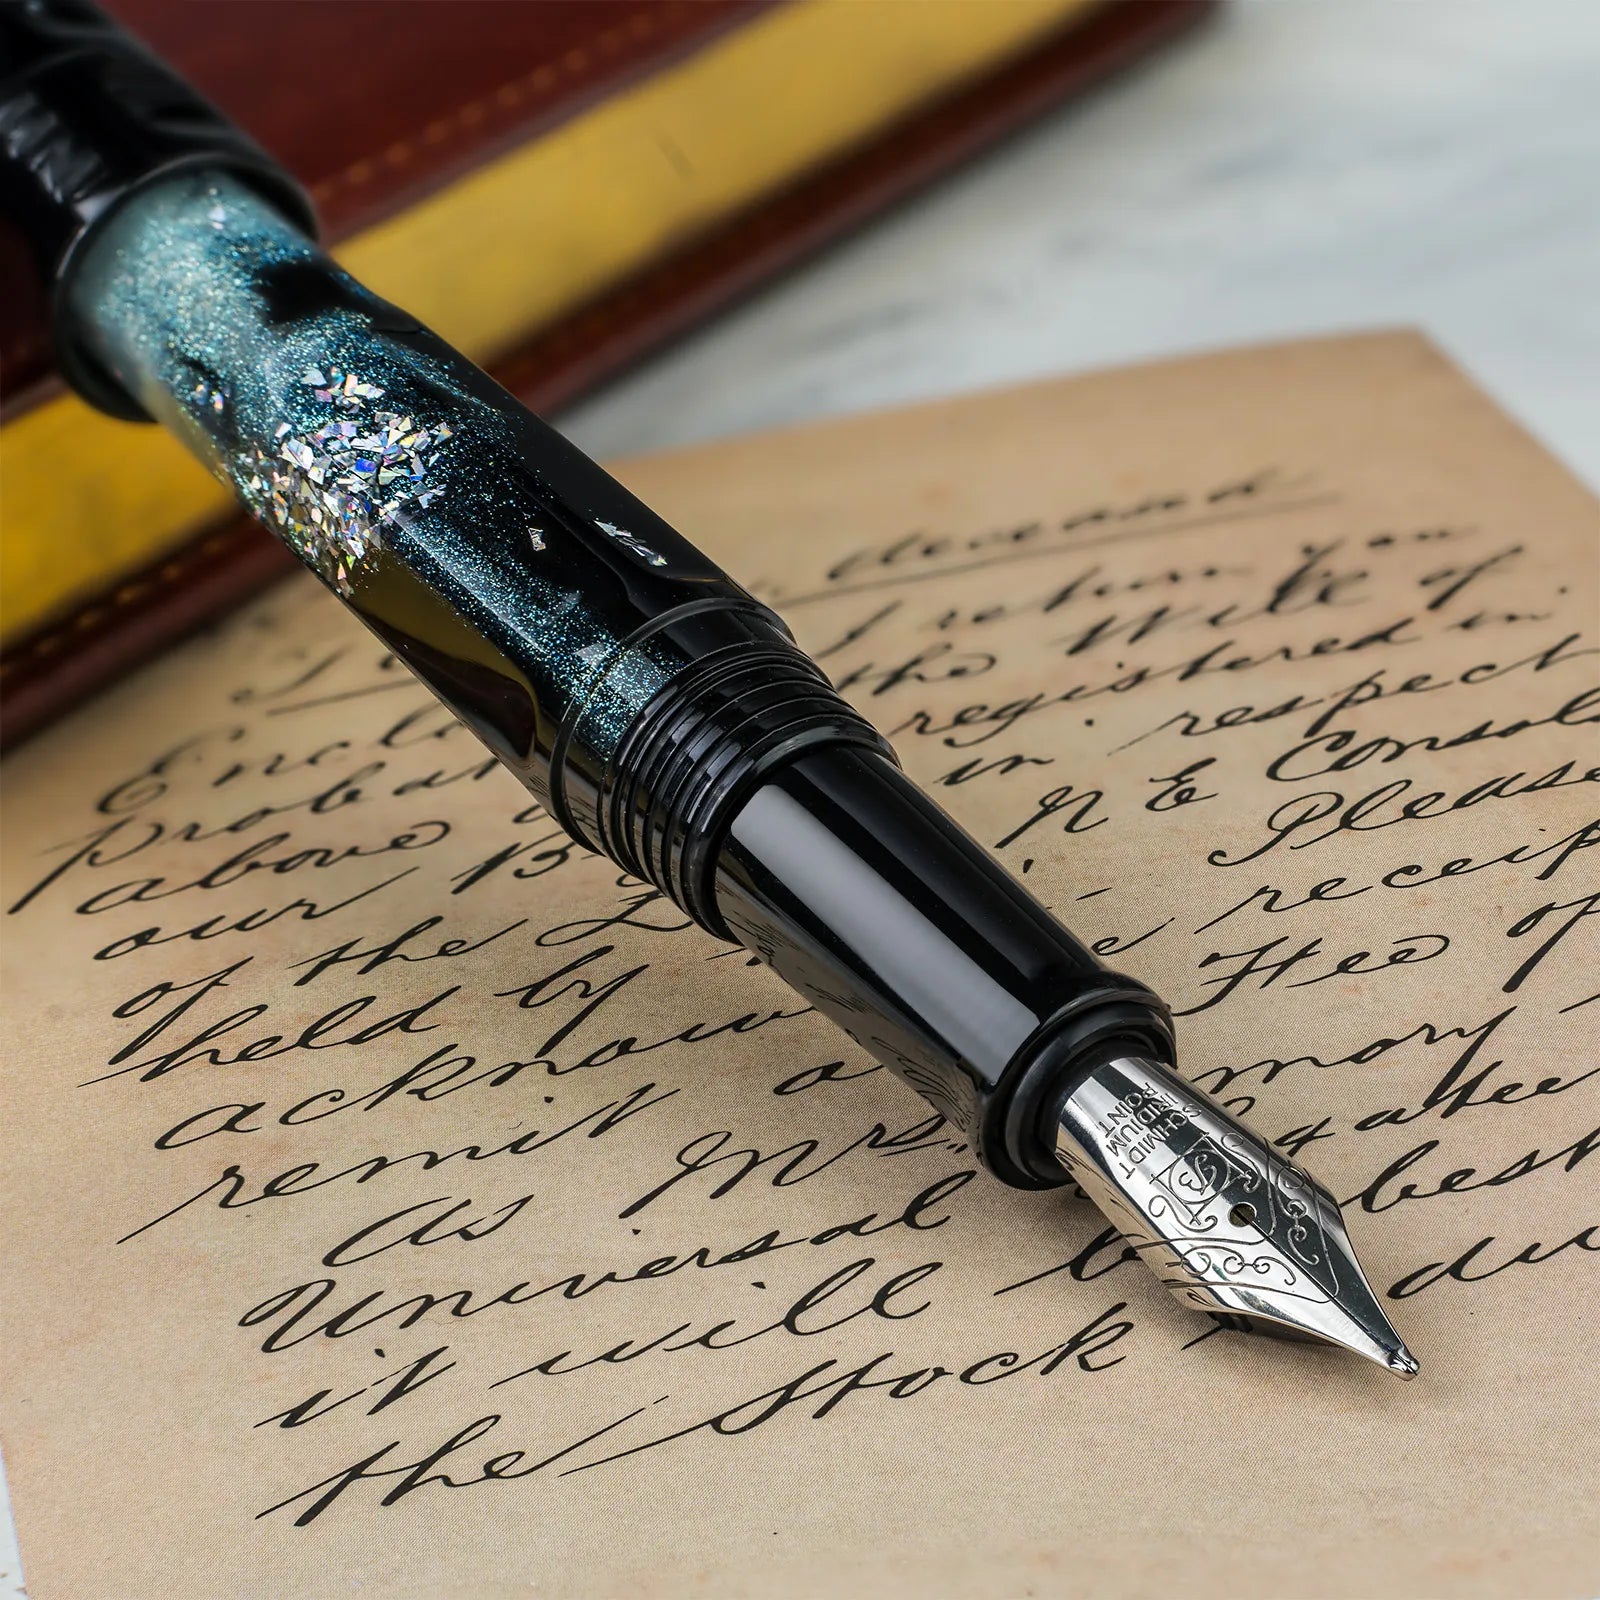 Cleveland
I return you
Encl the Will of
probat registered in
above in respect
our B N E Consols
of the L Please
held by receip
acknow Fee of
remit a mory
as Mrs. Gatee
Universal best
it will b du
the Stock
SCHMIDT
IRIDIUM
POINT